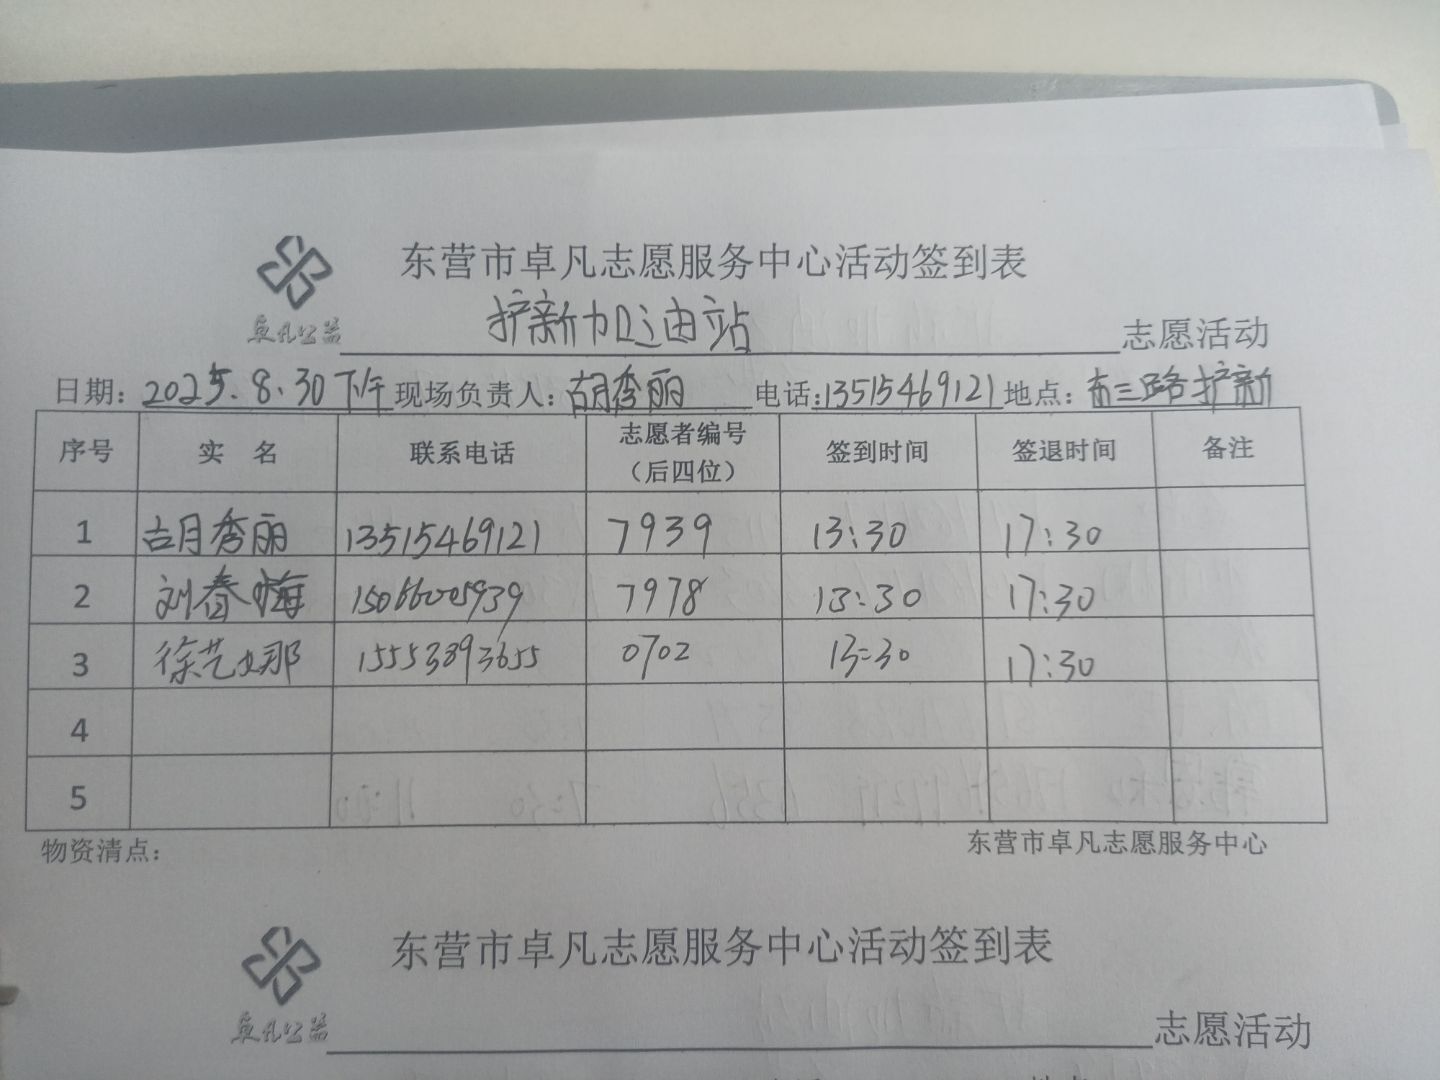 东营市卓凡志愿服务中心活动签到表
卓凡公益 护新加油站 志愿活动
日期：2025.8.30下午 现场负责人：胡秀丽 电话：13515469121 地点：东三路护新
序号 实 名 联系电话 志愿者编号（后四位） 签到时间 签退时间 备注
1 胡秀丽 13515469121 7939 13:30 17:30
2 刘春梅 15066005939 7978 13:30 17:30
3 徐艺文那 15553893655 0702 13:30 17:30
4
5
物资清点： 东营市卓凡志愿服务中心
东营市卓凡志愿服务中心活动签到表
卓凡公益 志愿活动